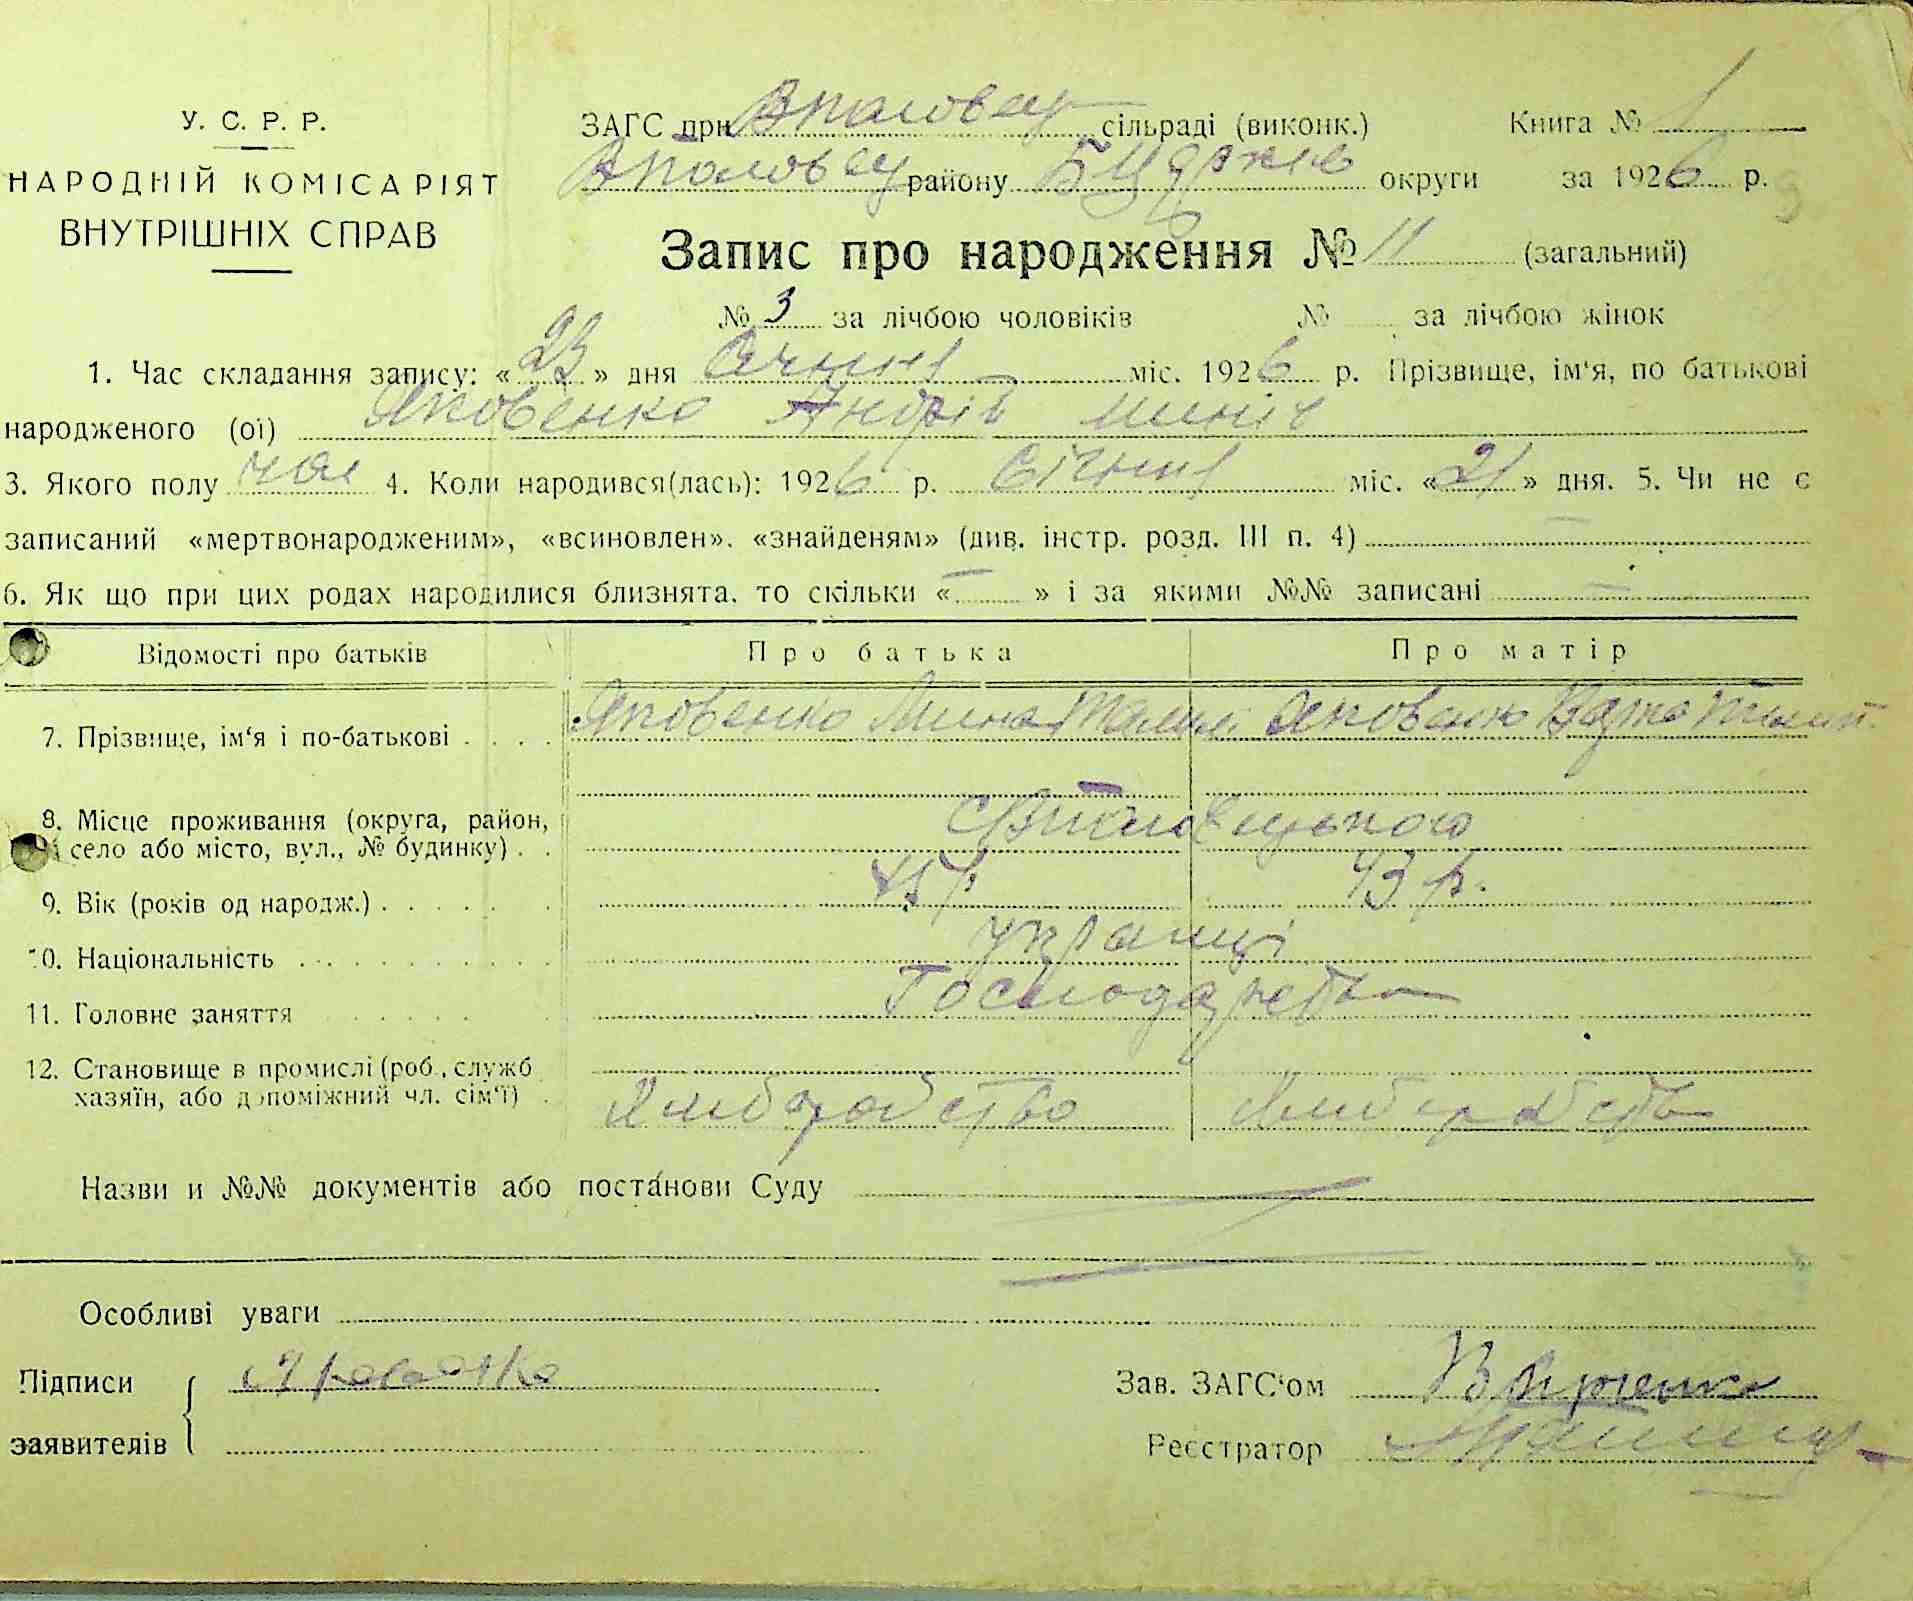 У. С. Р. Р.
НАРОДНІЙ КОМІСАРІЯТ
ВНУТРІШНІХ СПРАВ
ЗАГС при сільраді (виконк.) Книга № 1
району Б Церків округи за 1926 р.
Запис про народження № 11 (загальний)
№ 3 за лічбою чоловіків № за лічбою жінок
1. Час складання запису: « 23 » дня Січня міс. 1926 р. Прізвище, ім'я, по батькові
народженого (ої) Яковенко Андрій Минич
3. Якого полу чол 4. Коли народився(лась): 1926 р. Січня міс. « 21 » дня. 5. Чи не є
записаний «мертвонародженим», «всиновлен». «знайденям» (див. інстр. розд. III п. 4) —
6. Як що при цих родах народилися близнята. то скільки « — » і за якими №№ записані —
Відомості про батьків Про батька Про матір
7. Прізвище, ім'я і по-батькові Яковенко Мина Яковенко
8. Місце проживання (округа, район,
село або місто, вул., № будинку)
9. Вік (років од народж.) 43 р.
10. Національність українці
11. Головне заняття Господарство
12. Становище в промислі (роб., служб
хазяїн, або допоміжний чл. сім'ї) Хліборобство Хлібороство
Назви и №№ документів або постанови Суду
Особливі уваги
Підписи Яковенко Зав. ЗАГС'ом
заявителів Реєстратор